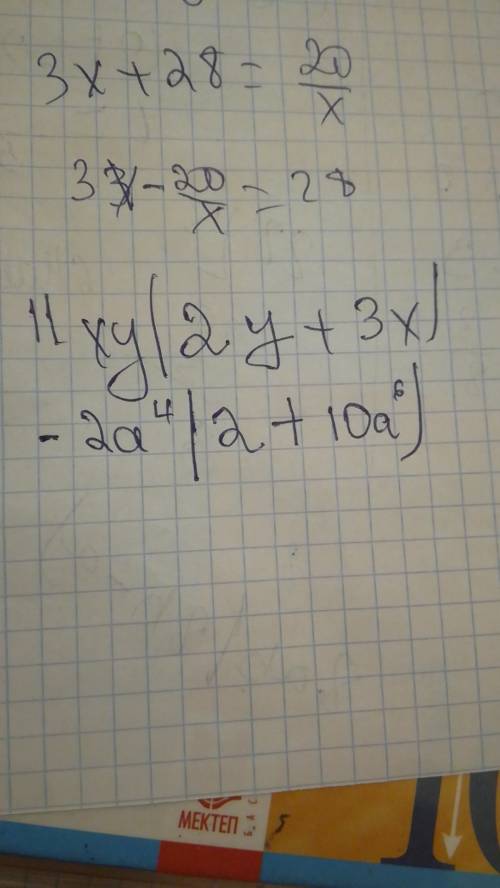 3x + 28 = 20/x
3x - 20/x = 28
11xy(2y + 3x)
-2a⁴(2 + 10a⁶)
МЕКТЕП
5
10